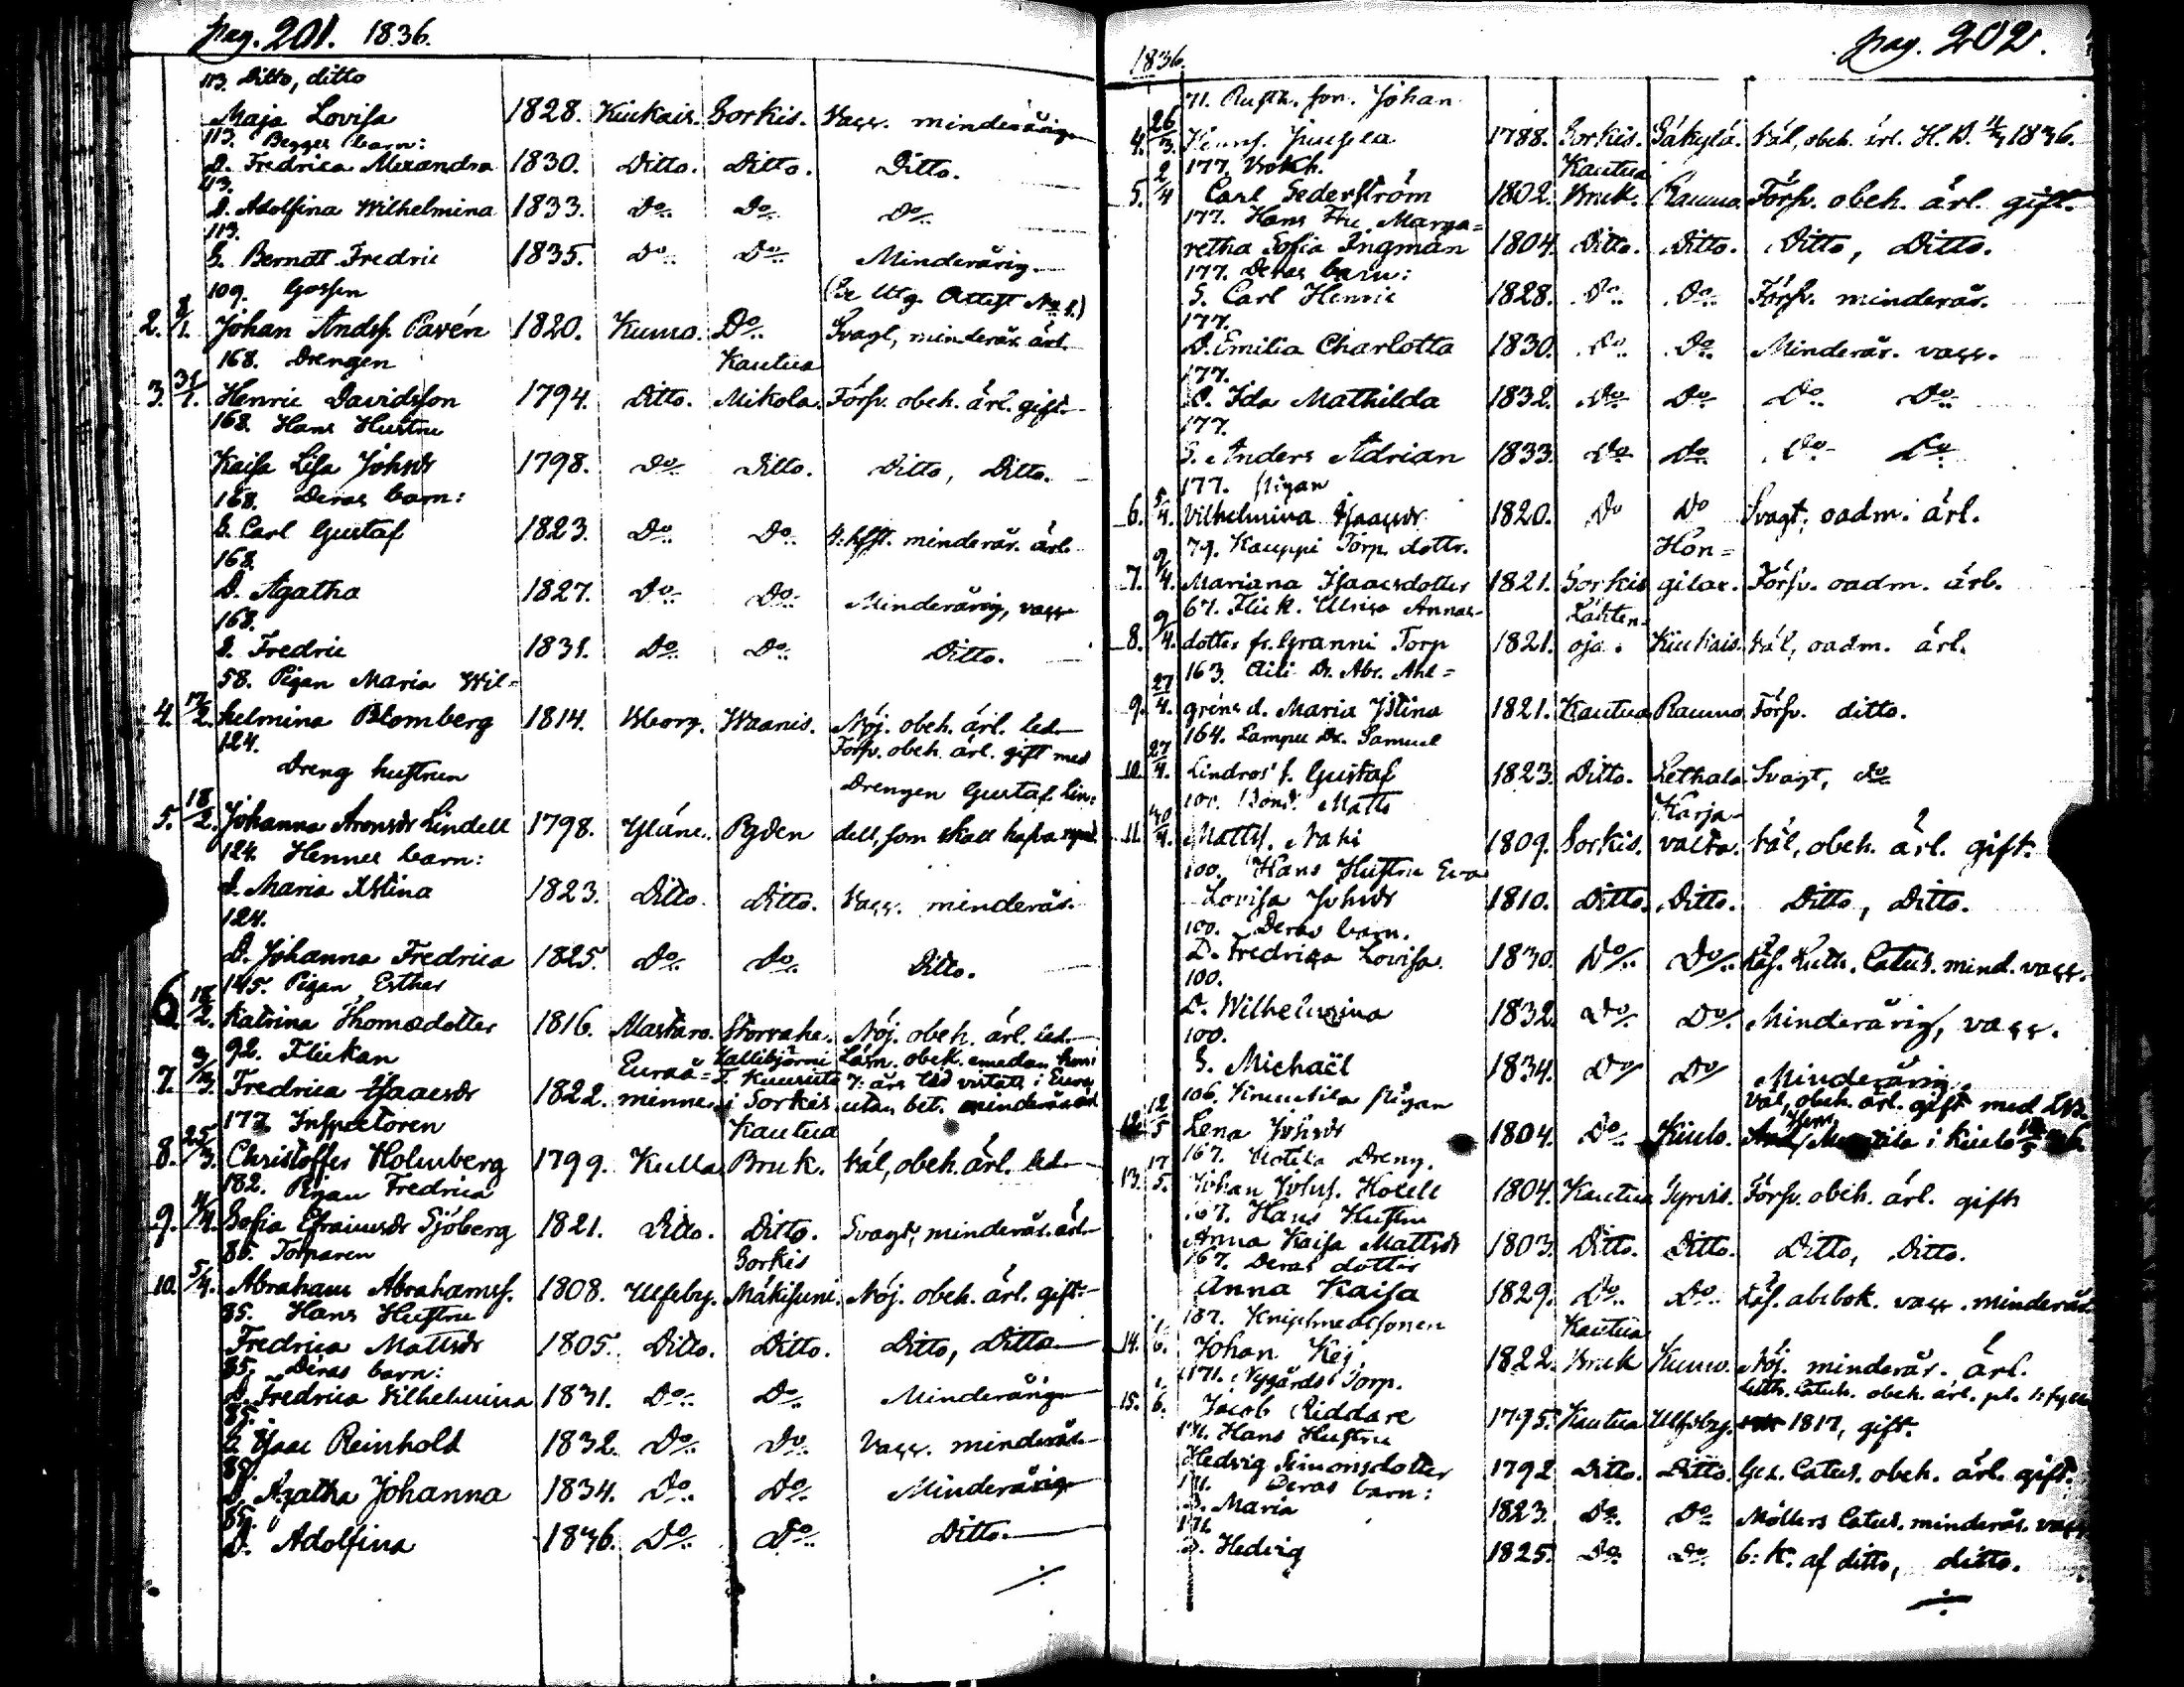 pag. 201. 1836.
113. Ditto, ditto
Maja Lovisa 1828. Kiukais. Sorkis. Vacc. minderårig
113. Begges barn:
D. Fredrica Alexandra 1830. Ditto. Ditto. Ditto.
113.
D. Adolfina Wilhelmina 1833. Do Do Do
113.
S. Berndt Fredric 1835. Do Do Minderårig.
109. Gossen (Se Utg. Attest No 1.)
2. 8/1. Johan Andsf. Pavén 1820. Kumo. Do Svagt, minderår. ärl.
168. Drengen Kautua
3. 31/1. Henric Davidsson 1794. Ditto. Mikola. Försv. obeh. ärl. gift
168. Hans Hustru
Kaisa Lisa Johsdr 1798. Do Ditto. Ditto, Ditto.
168. Deras barn:
S. Carl Gustaf 1823. Do Do 4: hfst. minderår. ärl.
168.
D. Agatha 1827. Do Do Minderårig, vacc
168.
S. Fredric 1831. Do Do Ditto.
58. Pigan Maria Wil=
4. 17/2. helmina Blomberg 1814. Wborg. Waanis. Nöj. obeh. ärl. led.
124. Försv. obeh. ärl. gift med
Dreng hustrun Drengen Gustaf Lin=
5. 18/2. Johanna Aronsdr Lindell 1798. Yläne. Pyden dell, som skall hafva
124. Hennes barn:
D. Maria Xstina 1823. Ditto. Ditto. Vacc. minderår.
124.
D. Johanna Fredrica 1825. Do Do Ditto.
145. Pigan Esther
6. 18/2. Katrina Thomædotter 1816. Alastaro. Storraha. Nöj. obeh. ärl. led.
92. Flickan Euraå= Kallibjörni Läsn. obek. emedan hon i
7. 9/3. Fredrica Isaacsdr 1822. minne. i Sorkis utan bet. minderår. ärl
177. Inspectoren Kautua
8. 25/3. Christoffer Holmberg 1799. Kulla. Bruk. Väl, obeh. ärl. led
182. Pigan Fredrica
9. 4/4. Sofia Efraimsdr Sjöberg 1821. Ditto. Ditto. Svagt, minderår. ärl
85. Torparen Sorkis
10. 5/4. Abraham Abrahamsf. 1808. Ulfsby. Mäkisuni. Nöj. obeh. ärl. gift.
85. Hans Hustru
Fredrica Mattsdr 1805. Ditto. Ditto. Ditto, Ditto
85. Deras barn:
D. Fredrica Vilhelmina 1831. Do Do Minderårig
85.
S. Isaac Reinhold 1832. Do Do Vacc. minderår.
85.
D. Agatha Johanna 1834. Do Do Minderårig
85.
D. Adolfina 1836. Do Do Ditto.
pag. 202.
1836.
71. Rusth. son. Johan
4. 26/3. 1788. Sorkis. Säkylä. Väl, obeh. ärl. H. D. 1836.
177. Kautua
5. 2/4 Carl Sederström 1802. Bruk. Raumo. Försv. obeh. ärl. gift.
177. Hans Hu. Marga=
retha Sofia Ingman 1804. Ditto. Ditto. Ditto, Ditto.
177. Deras barn:
S. Carl Henric 1828. Do Do Försv. minderår.
177.
D. Emilia Charlotta 1830. Do Do Minderår. vacc.
177.
D. Ida Mathilda 1832. Do Do Do Do
177.
S. Anders Adrian 1833. Do Do Do Do
177. Pigan
6. 5/4. Vilhelmina Isaacsdr 1820. Do Do Svagt, oadm. ärl.
79. Kauppi Torp. dottr. Hon=
7. 9/4. Mariana Isaacsdotter 1821. Sorkis gilac. Försv. oadm. ärl.
67. Flick. Ulrica Annas- Lähten-
8. 9/4. dotter fr. Granni Torp 1821. oja. Kiukais. Väl, oadm. ärl.
163. Aili Dr. Abr. Ahl=
9. 27/4. gréns d. Maria Xstina 1821. Kautua Raumo Försv. ditto.
164. Lampu Dr. Samuel
10. 27/4. Lindros' s. Gustaf 1823. Ditto. Lethala Svagt, Do
100. Bond. Matts Karja-
11. 30/4. Mattsf. Naki 1809. Sorkis. valta. Väl, obeh. ärl. gift.
100. Hans Hustru Eva
Lovisa Johsdr 1810. Ditto. Ditto. Ditto, Ditto.
100. Deras barn.
D. Fredrica Lovisa 1830. Do Do Läs. Luth. Catech. mind. vacc.
100.
D. Wilhelmina 1832. Do Do Minderårig, vacc.
100.
S. Michaël 1834. Do Do Minderårig.
106. Knuutila Pigan Väl, obeh. ärl. gift med
12. 12/5 Lena Johsdr 1804. Do Kiulo. i Kiulo
167. Uotila Dreng.
13. 17/5. Johan Johsf. Hocell 1804. Kautua Tyrvis. Försv. obeh. ärl. gift
167. Hans Hustru
Anna Kaisa Mattsdr 1803. Ditto. Ditto. Ditto, Ditto.
167. Deras dotter
Anna Kaisa 1829. Do Do Läs. abcbok. vacc. minderår.
187. Knipsmedssonen Kautua
14. 1/6. Johan Kej 1822. Bruk Kumo. Nöj. minderår. ärl.
171. Nygårds Torp. Luth. Catech. obeh. ärl.
15. 1/6. Jacob Riddare 1795. Kautua Ulfsby. 1817, gift.
171. Hans Hustru
Hedvig Simonsdotter 1792 Ditto. Ditto. Gez. Catech. obeh. ärl. gift.
171. Deras barn:
D. Maria 1823. Do Do Möllers Catech. minderår. vacc
171.
D. Hedvig 1825. Do Do 6: K. af ditto, ditto.